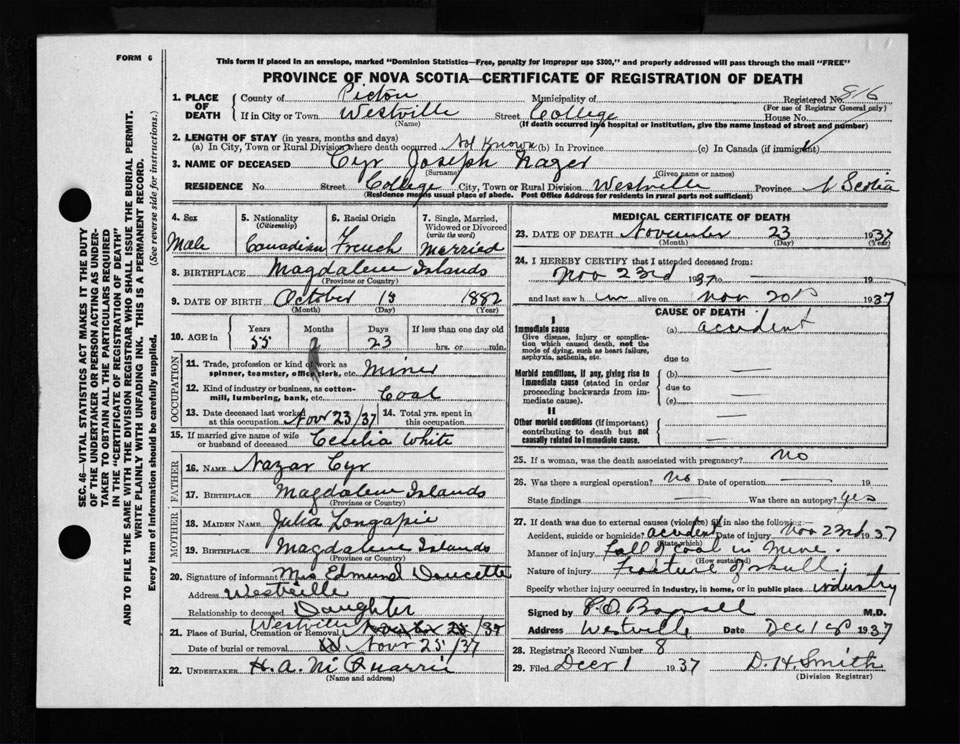 FORM 6
This form if placed in an envelope, marked "Dominion Statistics—Free, penalty for improper use $300," and properly addressed will pass through the mail "FREE"
PROVINCE OF NOVA SCOTIA—CERTIFICATE OF REGISTRATION OF DEATH
1. PLACE OF DEATH County of Pictou Municipality of Registered No. 816
(For use of Registrar General only)
If in City or Town Westville Street College House No.
(Name) (If death occurred in a hospital or institution, give the name instead of street and number)
2. LENGTH OF STAY (in years, months and days)
(a) In City, Town or Rural Division where death occurred Not Known (b) In Province (c) In Canada (if immigrant)
3. NAME OF DECEASED Cyr Joseph Nazer
(Surname) (Given name or names)
RESIDENCE No. Street College City, Town or Rural Division Westville Province N Scotia
(Residence means usual place of abode. Post Office Address for residents in rural parts not sufficient)
4. Sex 5. Nationality (Citizenship) 6. Racial Origin 7. Single, Married, Widowed or Divorced (write the word)
Male Canadian French Married
8. BIRTHPLACE Magdalene Islands
(Province or Country)
9. DATE OF BIRTH October 15 1882
(Month) (Day) (Year)
10. AGE in Years Months Days If less than one day old
55 23 hrs. or min.
OCCUPATION
11. Trade, profession or kind of work as spinner, teamster, office clerk, etc. Miner
12. Kind of industry or business, as cotton-mill, lumbering, bank, etc. Coal
13. Date deceased last worked at this occupation Novr 23/37 14. Total yrs. spent in this occupation
15. If married give name of wife or husband of deceased Cecelia White
FATHER
16. NAME Nazar Cyr
17. BIRTHPLACE Magdalene Islands
(Province or Country)
MOTHER
18. MAIDEN NAME Julia Longapie
19. BIRTHPLACE Magdalene Islands
(Province or Country)
20. Signature of informant Mrs Edmund Doucette
Address Westville
Relationship to deceased Daughter
21. Place of Burial, Cremation or Removal Westville
Date of burial or removal Novr 25/37
22. UNDERTAKER H. A. McQuarrie
(Name and address)
MEDICAL CERTIFICATE OF DEATH
23. DATE OF DEATH November 23 1937
(Month) (Day) (Year)
24. I HEREBY CERTIFY that I attended deceased from:
Nov 23rd 1937 to 19
and last saw him alive on Nov 1937
CAUSE OF DEATH
I
Immediate cause (a) accident
Give disease, injury or complication which caused death, not the mode of dying, such as heart failure, asphyxia, asthenia, etc.
due to
Morbid conditions, if any, giving rise to immediate cause (stated in order proceeding backwards from immediate cause).
(b)
due to
(c)
II
Other morbid conditions (if important) contributing to death but not causally related to immediate cause.
25. If a woman, was the death associated with pregnancy? No
26. Was there a surgical operation? No Date of operation 19
State findings Was there an autopsy? yes
27. If death was due to external causes (violence) fill in also the following:—
Accident, suicide or homicide? accident Date of injury Nov 22nd 1937
(State which)
Manner of injury Fall of coal in mine.
(How sustained)
Nature of injury Fracture of skull;
Specify whether injury occurred in Industry, in home, or in public place industry
Signed by M.D.
Address Westville Date Dec 1st 1937
28. Registrar's Record Number 8
29. Filed Decr 1 1937 D. H. Smith
(Division Registrar)
SEC. 46—VITAL STATISTICS ACT MAKES IT THE DUTY
OF THE UNDERTAKER OR PERSON ACTING AS UNDER-
TAKER TO OBTAIN ALL THE PARTICULARS REQUIRED
IN THE "CERTIFICATE OF REGISTRATION OF DEATH"
AND TO FILE THE SAME WITH THE DIVISION REGISTRAR WHO SHALL ISSUE THE BURIAL PERMIT.
WRITE PLAINLY WITH UNFADING INK. THIS IS A PERMANENT RECORD.
Every item of information should be carefully supplied. (See reverse side for instructions.)